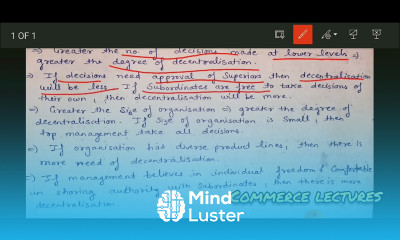 1 OF 1
⇒ Greater the no of decisions made at lower levels ⇒
greater the degree of decentralisation.
⇒ If decisions need approval of Superiors then decentralisation
will be less. If Subordinates are free to take decisions of
their own, then decentralisation will be more.
⇒ Greater the Size of organisation ⇒ greater the degree of
decentralisation. If Size of organisation is Small, then
top management take all decisions.
⇒ If organisation has diverse product lines, then there is
more need of decentralisation.
⇒ If management believes in individual freedom & Comfortable
in sharing authority with Subordinates, then there is more
decentralisation.
COMMERCE LECTURES
Mind
Luster